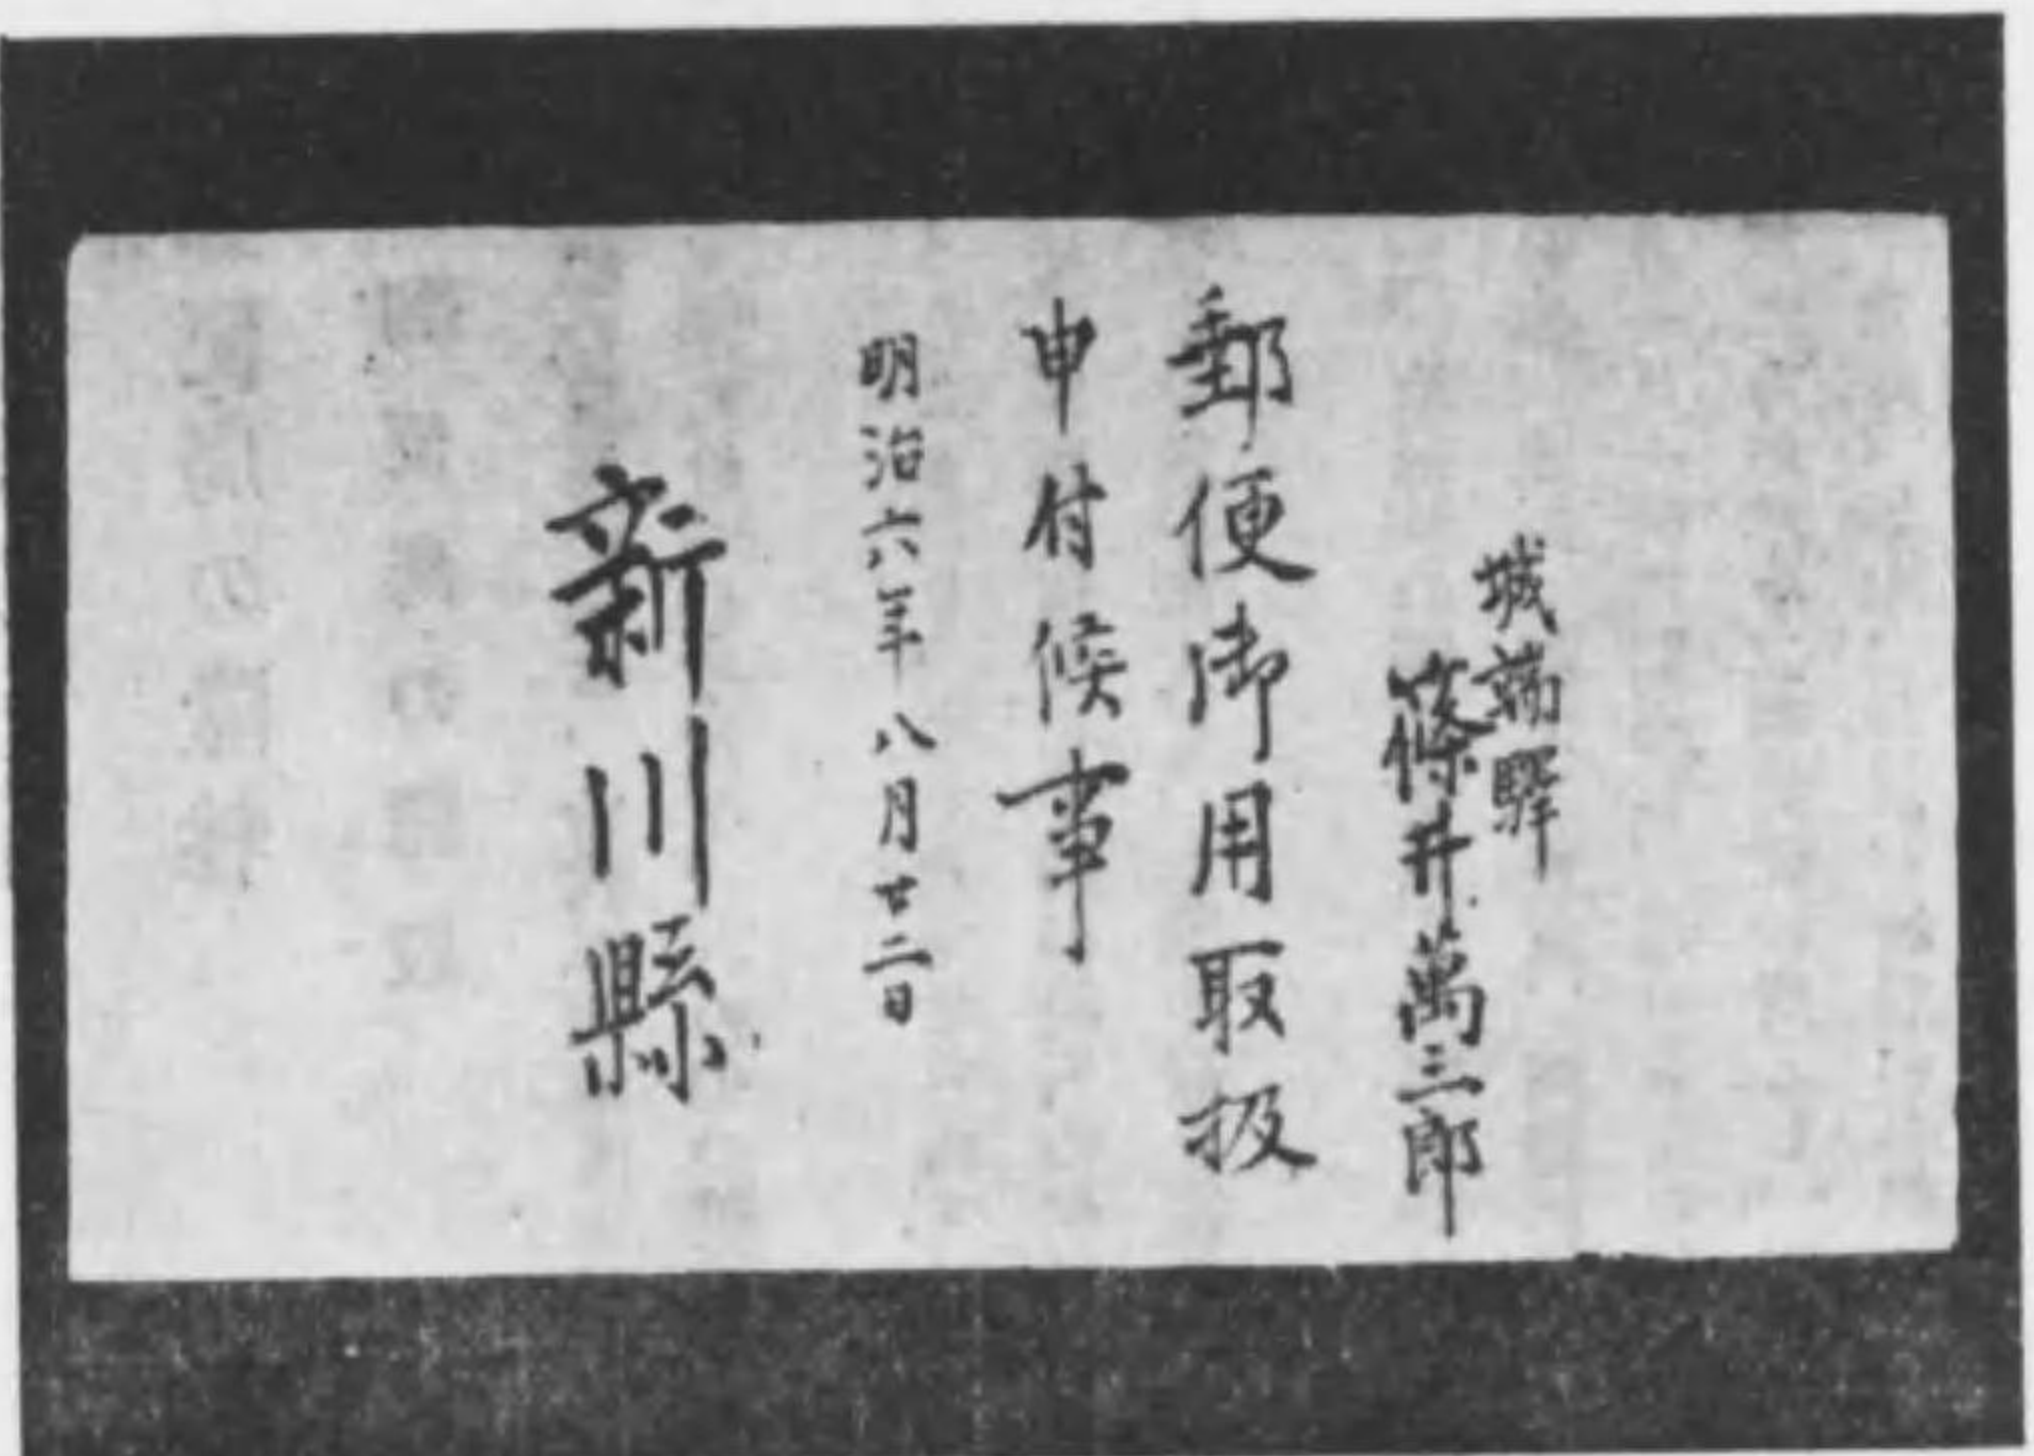 城端驛
篠井萬三郎
郵便御用取扱
申付候事
明治六年八月廿二日
新川縣